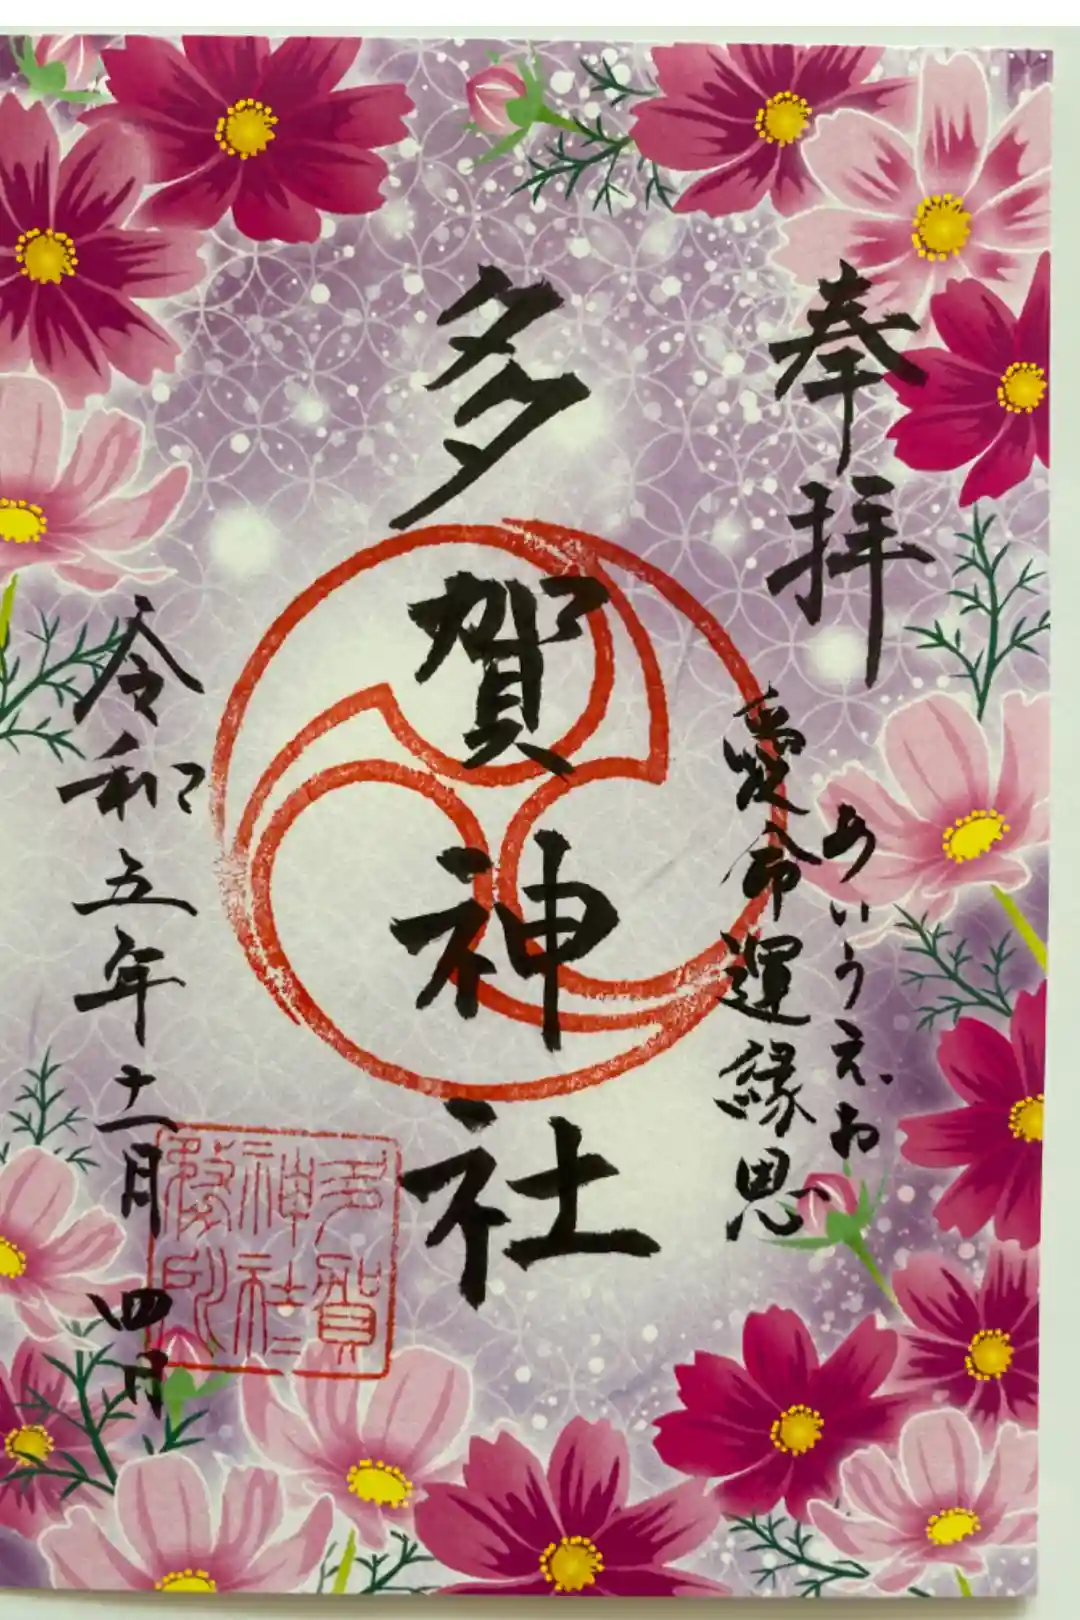 奉拝
あいうえお
愛命運縁恩
多賀神社
多賀
神社
令和五年十一月四日